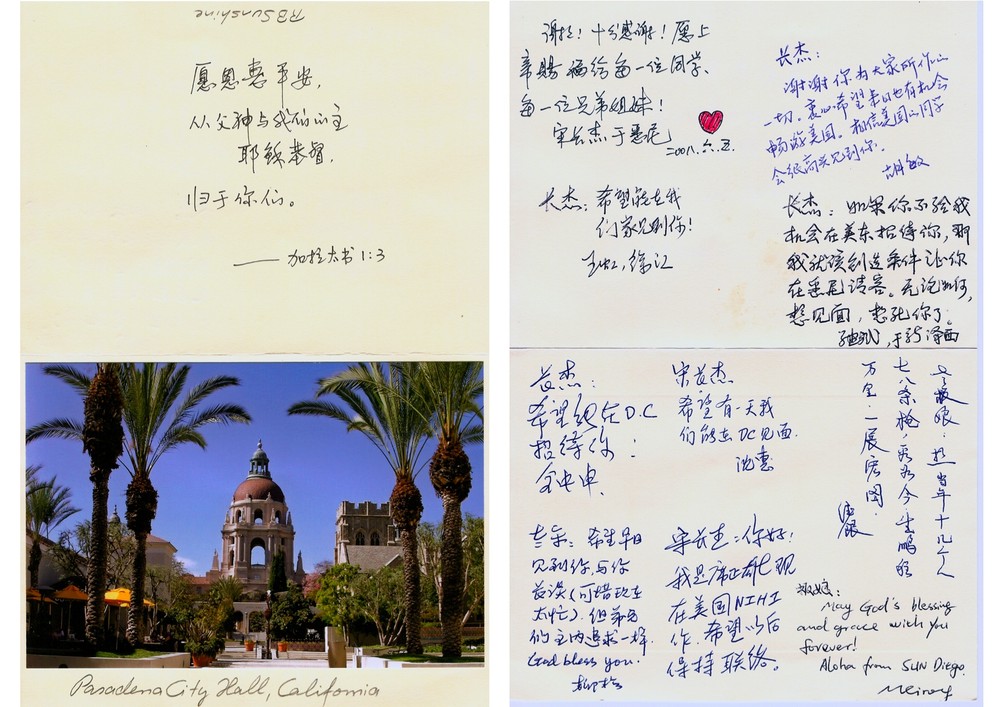 RBSunshine
愿恩惠平安,
从父神与我们的主
耶稣基督,
归于你们。
——加拉太书1:3
Pasadena City Hall, California
谢谢! 十分感谢! 愿上
帝赐福给每一位同学、
每一位兄弟姐妹!
宋长杰于悉尼
二〇〇八.六.五.
长杰:
谢谢你为大家所作的
一切。衷心希望来日也有机会
畅游美国。相信美国的同学
会很高兴见到你.
胡敏
长杰: 希望能在我
们家见到你!
徐江
长杰: 如果你不给我
机会在美东招待你, 那
我就该创造条件让你
在悉尼请客。无论如何,
想见面, 想死你了。
于新泽西
长杰:
希望能在D.C
招待你!
宋长杰
希望有一天我
们能在DC见面.
沈惠
想当年十几个人
七八条枪,
今生鹏程
万里, 一展宏图.
希望早日
见到你, 与你
长谈(可惜现在
太忙). 但弟兄
们主内追求一样.
God bless you.
宋长杰: 你好!
我是席正雄, 现
在美国NIH工
作. 希望以后
保持联络。
May God's blessing
and grace with you
forever!
Aloha from SUN Diego.